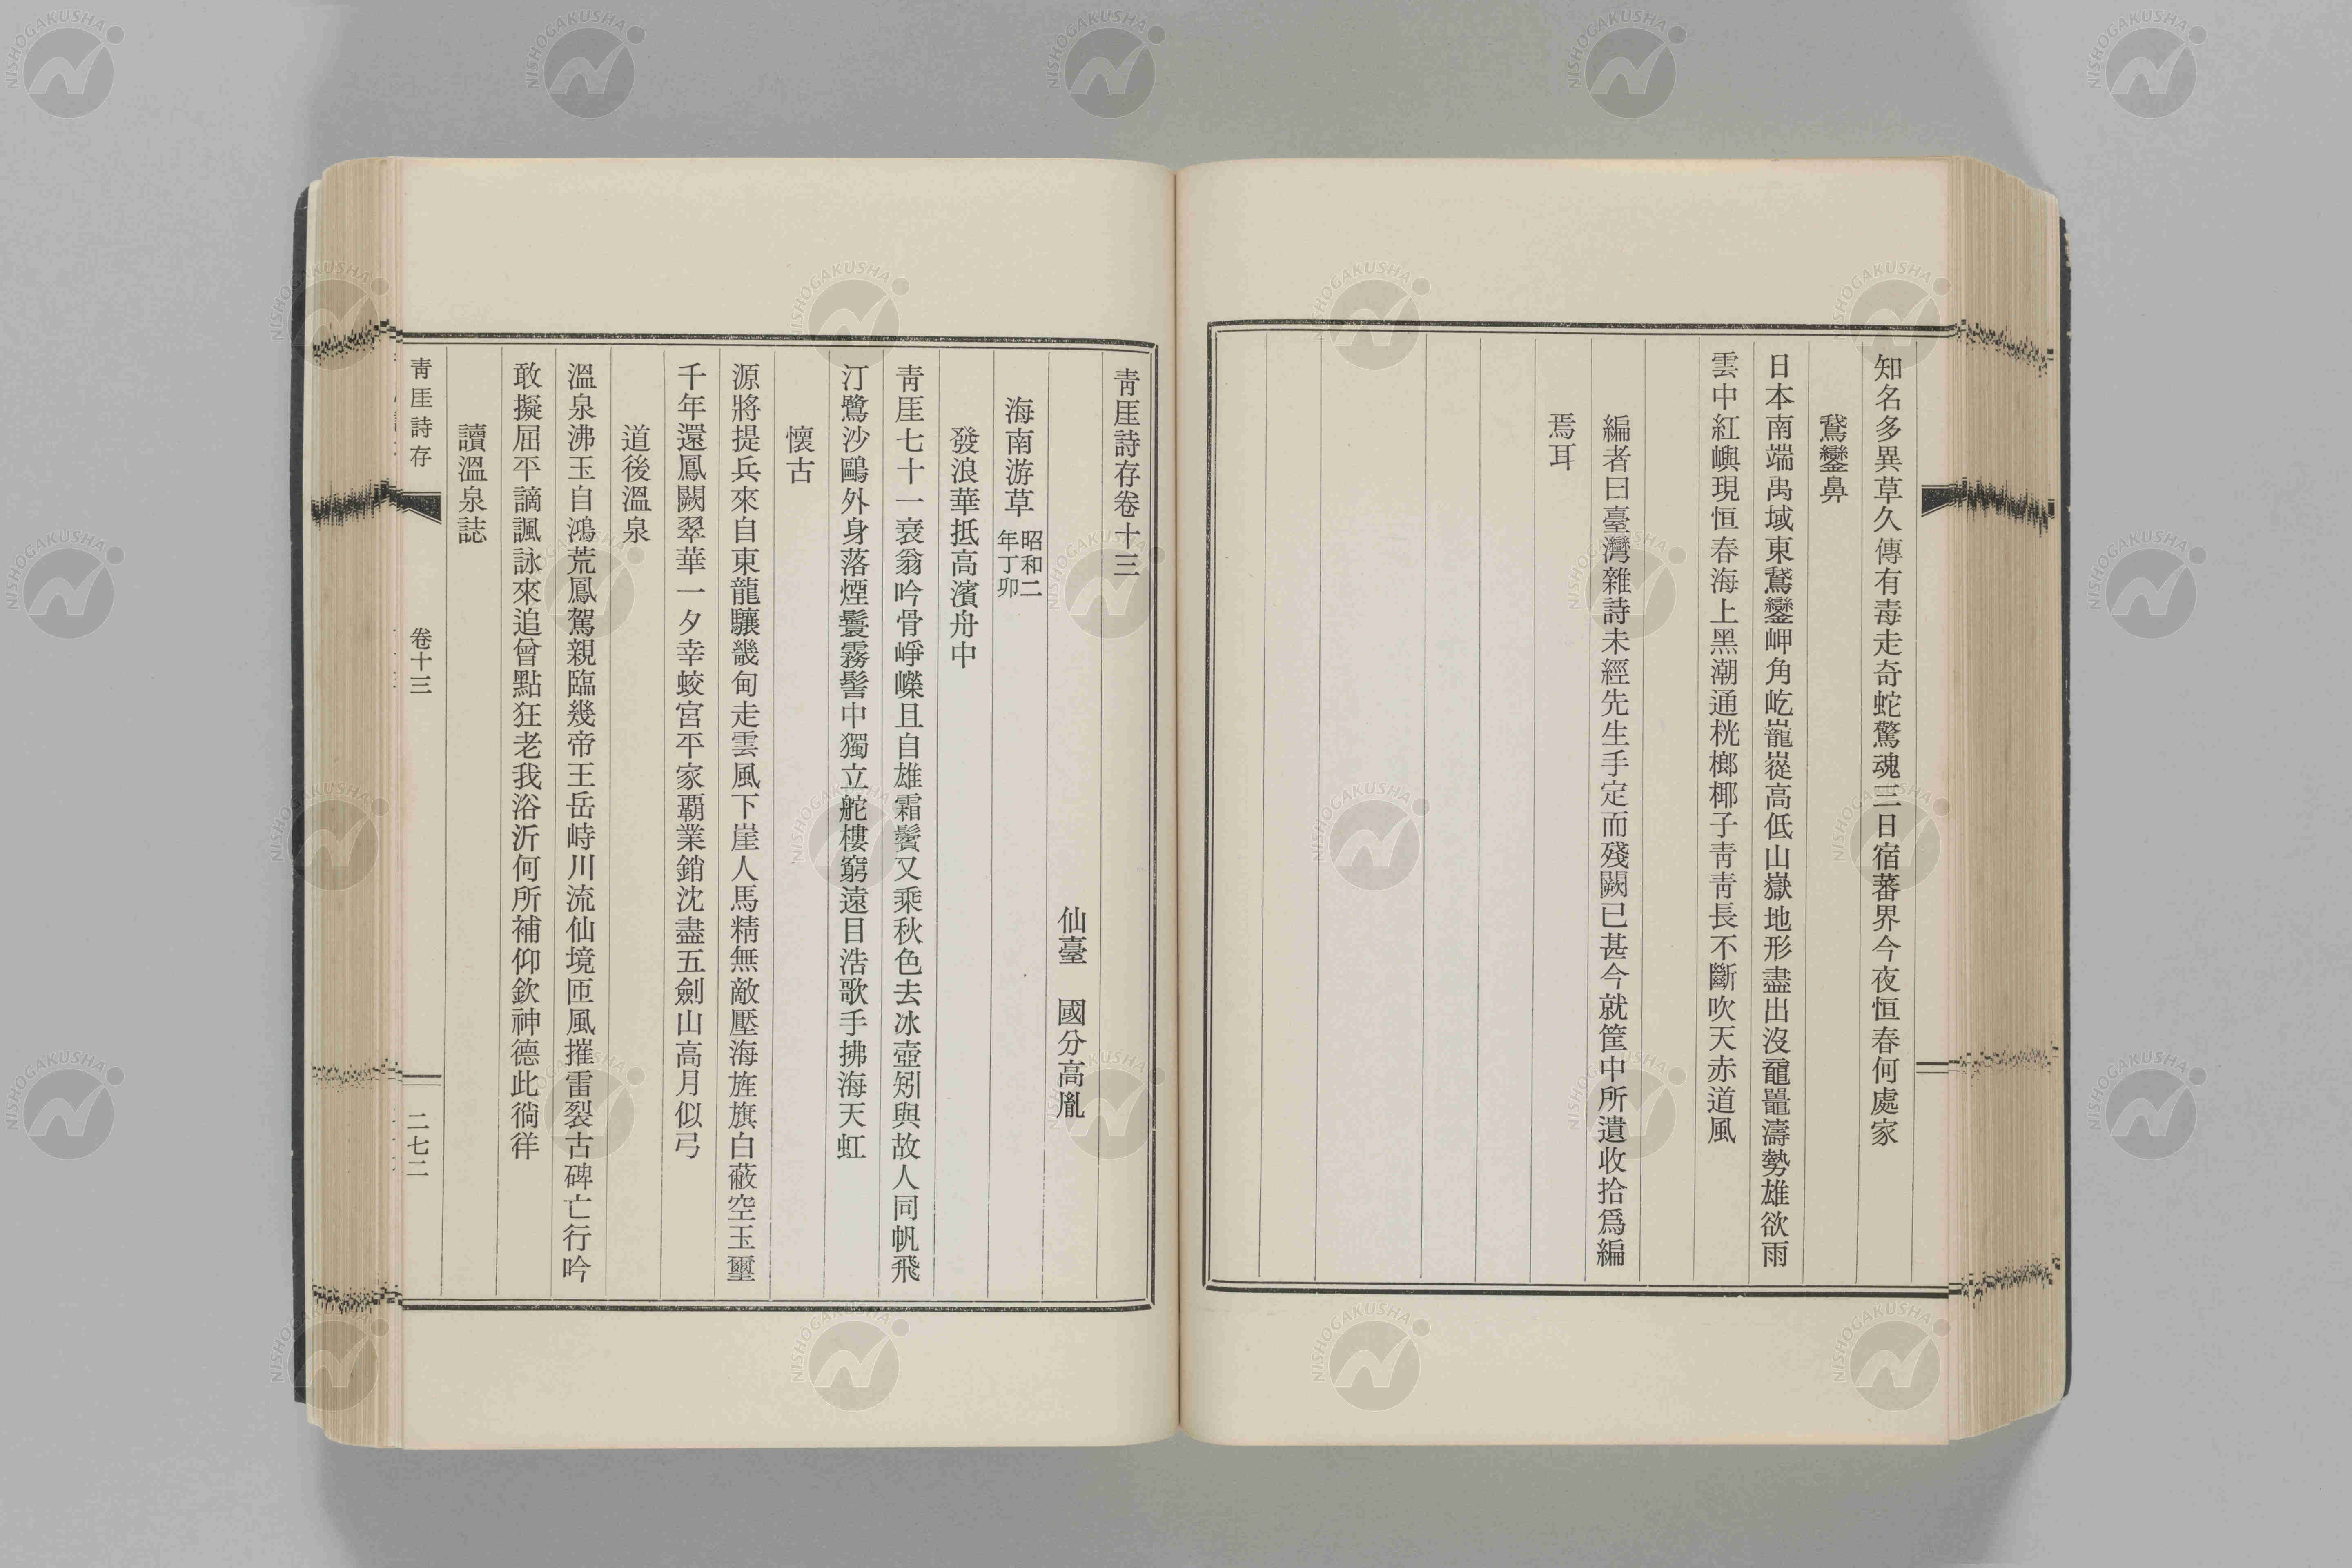 知名多異草久傳有毒走奇蛇驚魂三日宿蕃界今夜恒春何處家
鵞鑾鼻
日本南端禹域東鵞鑾岬角屹巃嵸高低山嶽地形盡出沒黿鼉濤勢雄欲雨
雲中紅嶼現恒春海上黑潮通桄榔椰子靑靑長不斷吹天赤道風
編者曰臺灣雜詩未經先生手定而殘闕已甚今就筐中所遺收拾爲編
焉耳
靑厓詩存卷十三
仙臺 國分高胤
海南游草 昭和二年丁卯
發浪華抵高濱舟中
靑厓七十一衰翁吟骨崢嶸且自雄霜鬢又乘秋色去冰壺矧與故人同帆飛
汀鷺沙鷗外身落煙鬟霧髻中獨立舵樓窮遠目浩歌手拂海天虹
懷古
源將提兵來自東龍驤畿甸走雲風下崖人馬精無敵壓海旌旗白蔽空玉璽
千年還鳳闕翠華一夕幸蛟宮平家覇業銷沈盡五劍山高月似弓
道後溫泉
溫泉沸玉自鴻荒鳳駕親臨幾帝王岳峙川流仙境匝風摧雷裂古碑亡行吟
敢擬屈平謫諷詠來追曾點狂老我浴沂何所補仰欽神德此徜徉
讀溫泉誌
靑厓詩存 卷十三 二七二
NISHOGAKUSHA